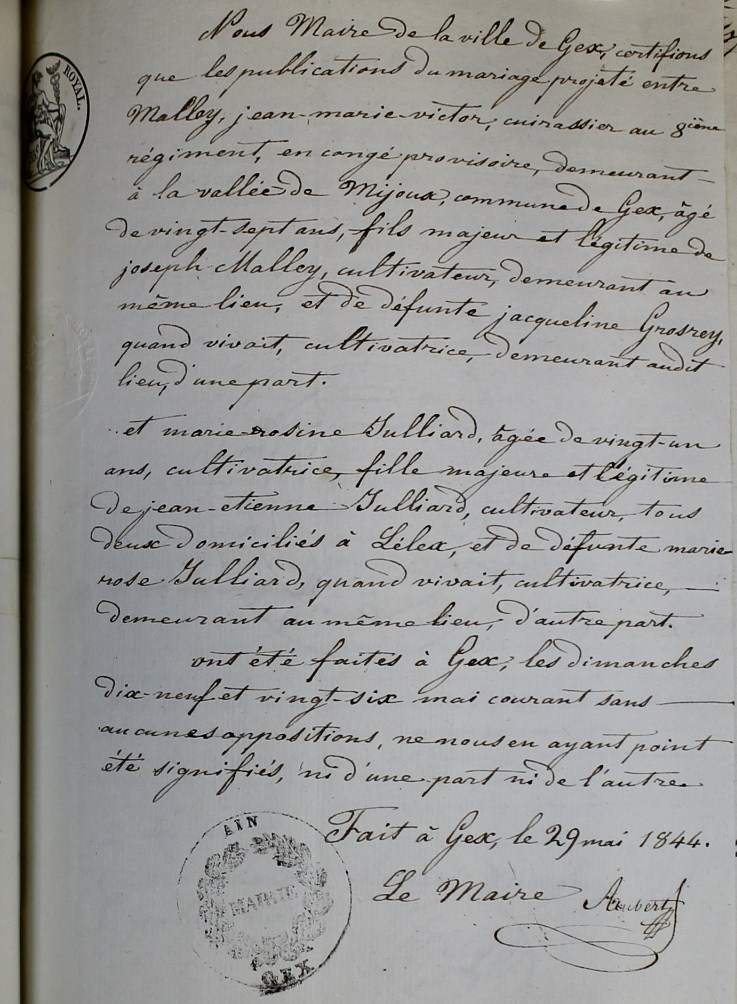 Nous Maire de la ville de Gex, certifions
que les publications du mariage projeté entre
Malley, jean-marie-victor, cuirassier au 8ième
régiment, en congé provisoire, demeurant
à la vallée de Mijoux, commune de Gex, âgé
de vingt-sept ans, fils majeur et légitime de
joseph Malley, cultivateur, demeurant au
même lieu, et de défunte jacqueline Grosrey,
quand vivait, cultivatrice, demeurant audit
lieu, d'une part.
et marie-rosine Julliard, âgée de vingt-un
ans, cultivatrice, fille majeure et légitime
de jean-etienne Julliard, cultivateur, tous
deux domiciliés à Lélex, et de défunte marie
rose Julliard, quand vivait, cultivatrice,
demeurant au même lieu, d'autre part.
ont été faites à Gex, les dimanches
dix-neuf et vingt-six mai courant sans
aucunes oppositions, ne nous en ayant point
été signifiés, ni d'une part ni de l'autre
Fait à Gex, le 29 mai 1844.
Le Maire Aubert
ROYAL.
AIN
MAIRIE
GEX